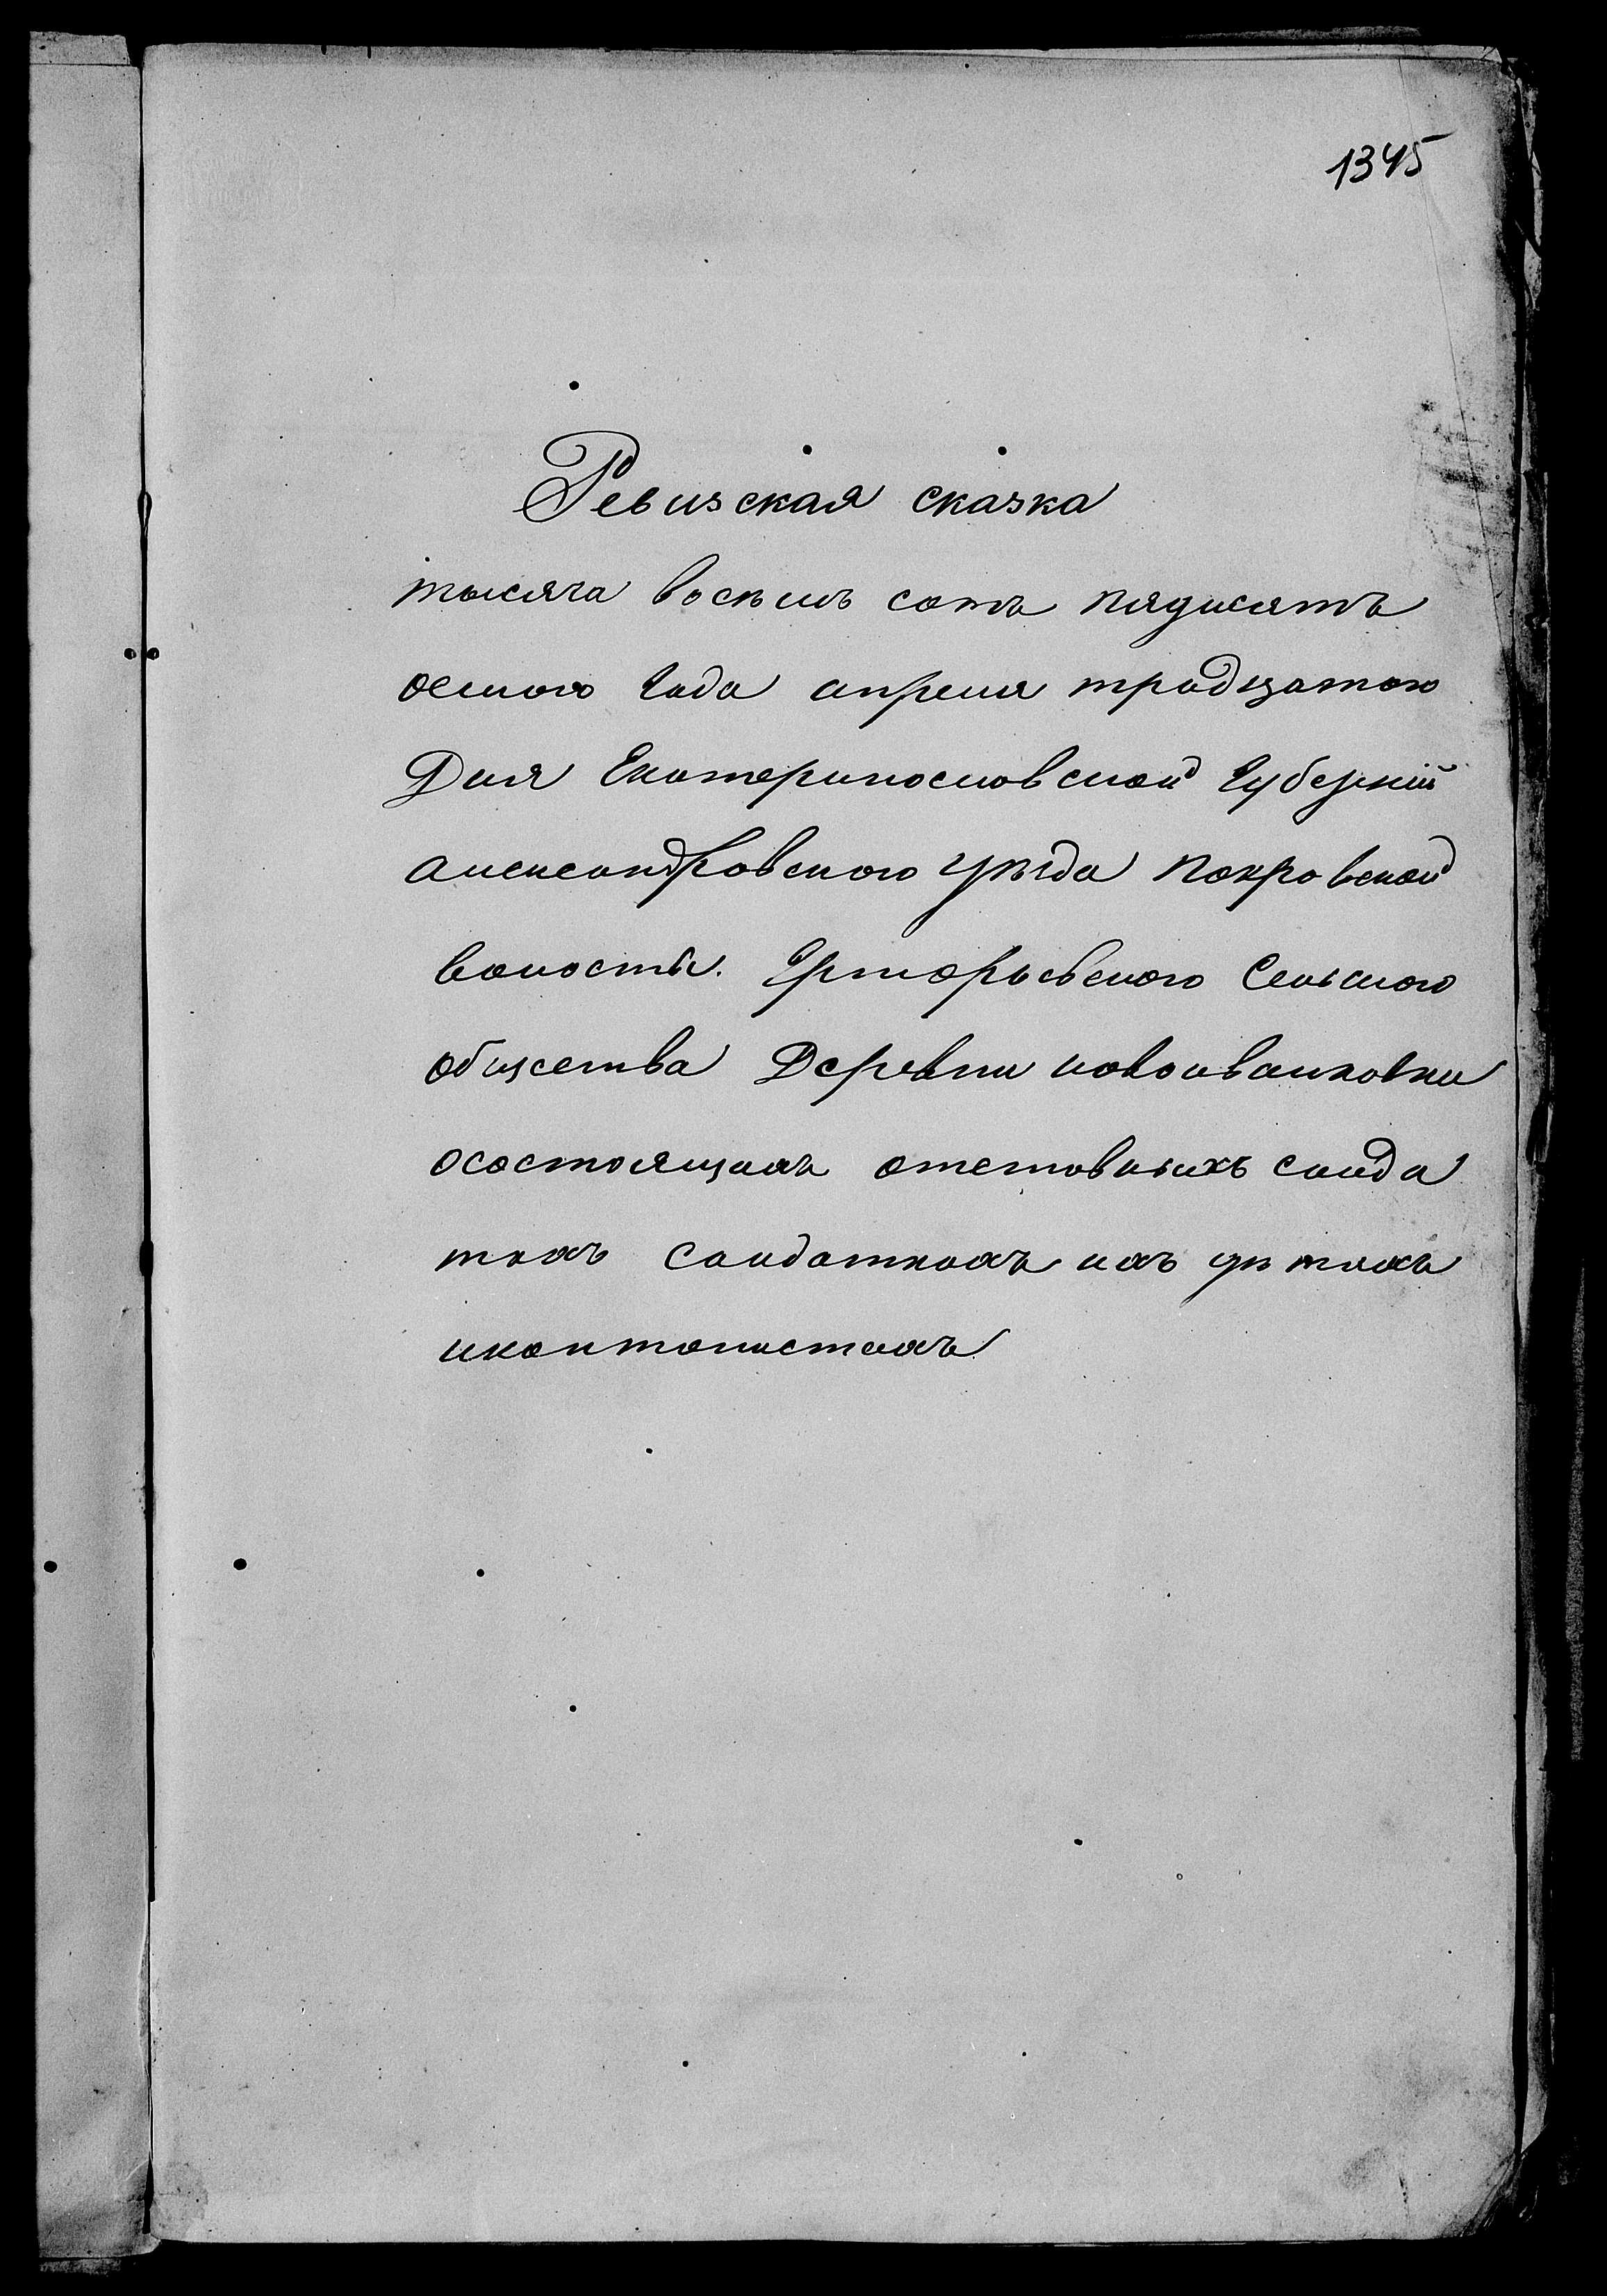 1345
Ревизская сказка
тысяча восемь сотъ пядисятъ
осмого Года апреля традцатого
Дня Екатеринославской Губерніи
александровского уѣзда покровской
волости. Григорьевского Сельского
общества Деревни новоивановки
осостоящихъ отставныхъ салда
тахъ салдаткахъ ихъ дѣтяхъ
икантонистахъ